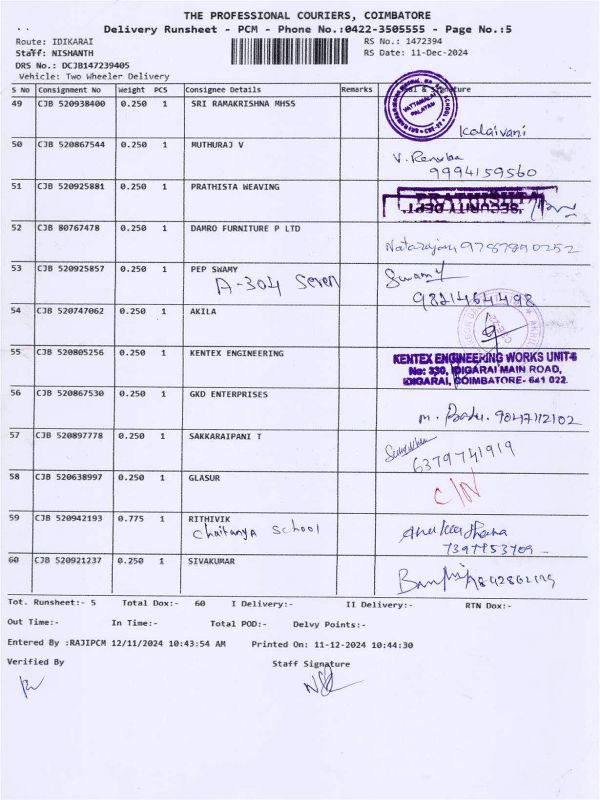 THE PROFESSIONAL COURIERS, COIMBATORE
Delivery Runsheet - PCM - Phone No.:0422-3505555 - Page No.:5
Route: IDIKARAI
RS No.: 1472394
Staff: NISHANTH
RS Date: 11-Dec-2024
DRS No.: DCJB147239405
Vehicle: Two Wheeler Delivery
S No Consignment No Weight PCS Consignee Details Remarks & Signature
49 CJB 520938400 0.250 1 SRI RAMAKRISHNA MHSS
VATTAMALAI PALAYAM
Kalaivani
50 CJB 520867544 0.250 1 MUTHURAJ V
V. Renuka
9994159560
51 CJB 520925881 0.250 1 PRATHISTA WEAVING
PRATHISHTA
SECURITY DEPT.
52 CJB 80767478 0.250 1 DAMRO FURNITURE P LTD
Natarajan 9787890252
53 CJB 520925857 0.250 1 PEP SWAMY
A-304 Seven
Swamy
9821464498
54 CJB 520747062 0.250 1 AKILA
55 CJB 520805256 0.250 1 KENTEX ENGINEERING
KENTEX ENGINEERING WORKS UNIT
No: 330, IDIGARAI MAIN ROAD,
IDIGARAI, COIMBATORE- 641 022.
56 CJB 520867530 0.250 1 GKD ENTERPRISES
57 CJB 520897778 0.250 1 SAKKARAIPANI T
6379741919
58 CJB 520638997 0.250 1 GLASUR
C/N
59 CJB 520942193 0.775 1 RITHIVIK
Chaitanya School
60 CJB 520921237 0.250 1 SIVAKUMAR
Tot. Runsheet:- 5 Total Dox:- 60 I Delivery:- II Delivery:- RTN Dox:-
Out Time:- In Time:- Total POD:- Delvy Points:-
Entered By :RAJIPCM 12/11/2024 10:43:54 AM Printed On: 11-12-2024 10:44:30
Verified By Staff Signature